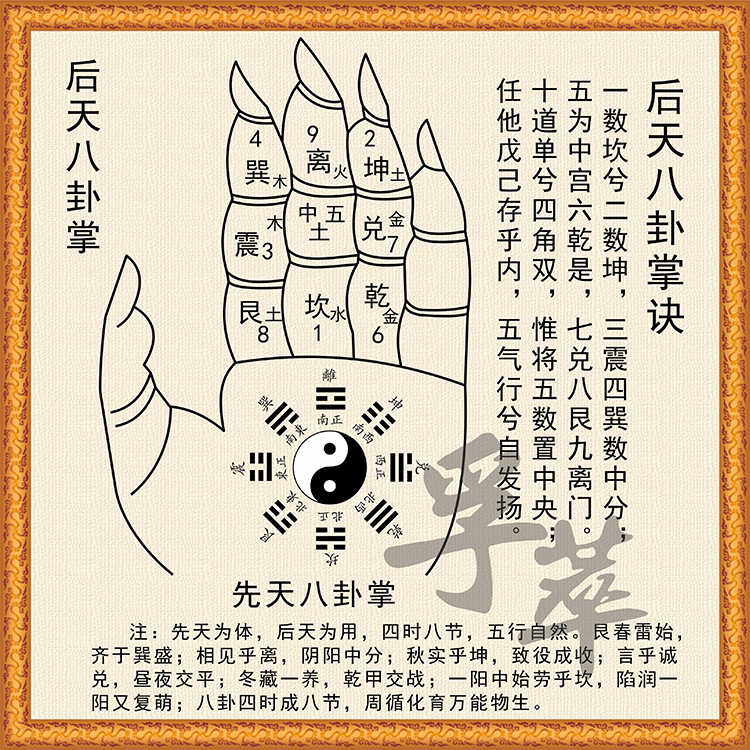 后天八卦掌
后天八卦掌诀
一数坎兮二数坤，三震四巽数中分；
五为中宫六乾是，七兑八艮九离门。
十道单兮四角双，惟将五数置中央；
任他戊己存乎内，五气行兮自发扬。
4
巽木
9
离火
2
坤土
木
震3
中五
土
金
兑7
艮土
8
坎水
1
乾金
6
離
南正
巽
南東
坤
南西
震
東正
兑
西正
艮
北東
乾
北西
北正
坎
先天八卦掌
孚萃
注：先天为体，后天为用，四时八节，五行自然。艮春雷始，
齐于巽盛；相见乎离，阴阳中分；秋实乎坤，致役成收；言乎诚
兑，昼夜交平；冬藏一养，乾甲交战；一阳中始劳乎坎，陷润一
阳又复萌；八卦四时成八节，周循化育万能物生。